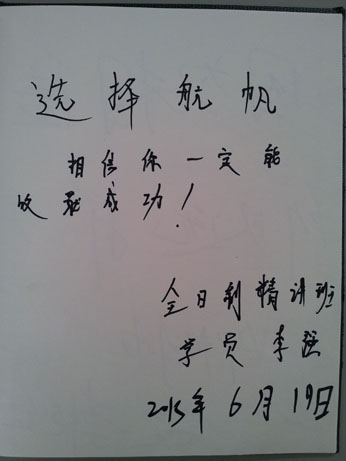 选择航帆
相信你一定能
收获成功！
全日制精讲班
学员 李强
2015年 6月19日